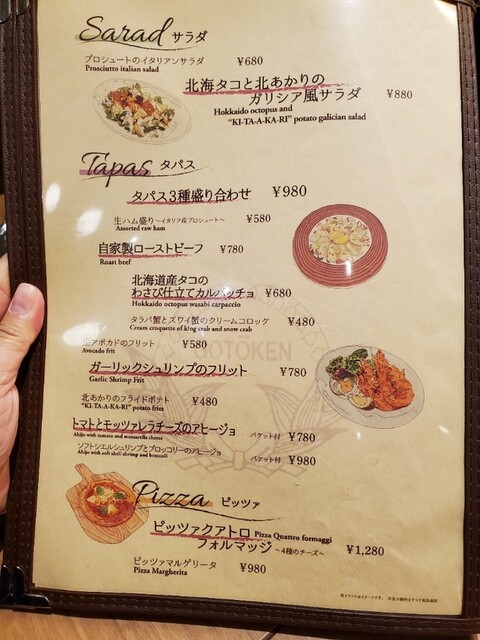 Sarad サラダ
プロシュートのイタリアンサラダ ¥680
Prosciutto italian salad
北海タコと北あかりの
ガリシア風サラダ ¥880
Hokkaido octopus and
"KI-TA-A-KA-RI" potato galician salad
Tapas タパス
タパス3種盛り合わせ ¥980
生ハム盛り~イタリア産プロシュート~ ¥580
Assorted raw ham
自家製ローストビーフ ¥780
Roast beef
北海道産タコの
わさび仕立てカルパッチョ ¥680
Hokkaido octopus wasabi carpaccio
タラバ蟹とズワイ蟹のクリームコロッケ ¥480
Cream croquette of king crab and snow crab
生アボカドのフリット ¥580
Avocado frit
SOTOKEN
ガーリックシュリンプのフリット ¥780
Garlic Shrimp Frit
北あかりのフライドポテト ¥480
"KI-TA-A-KA-RI" potato fries
トマトとモッツァレラチーズのアヒージョ バケット付 ¥780
Ahijo with tomato and mozzarella cheese
ソフトシェルシュリンプとブロッコリーのアヒージョ バケット付 ¥980
Ahijo with soft shell shrimp and broccoli
Pizza ピッツァ
ピッツァクアトロ Pizza Quattro formaggi
フォルマッジ ~4種のチーズ~ ¥1,280
ピッツァマルゲリータ ¥980
Pizza Margherita